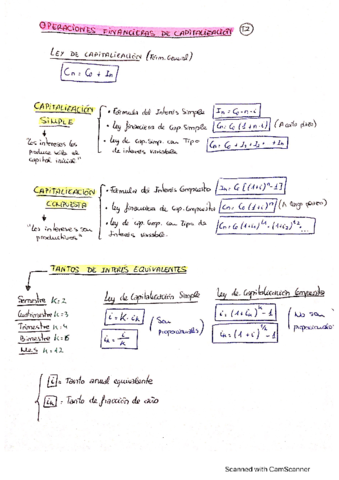 OPERACIONES FINANCIERAS DE CAPITALIZACIÓN
LEY DE CAPITALIZACIÓN
Cn = C0 + In
CAPITALIZACIÓN SIMPLE
"Los intereses los produce sólo el capital inicial"
• Fórmula del Interés Simple In = C0·n·i
• Ley financiera de Cap. Simple Cn = C0 (1+n·i)
• Ley de Cap. Simp. con Tipo de interés variable
CAPITALIZACIÓN COMPUESTA
"Los intereses son productivos"
• Fórmula del Interés Compuesto In = C0 [(1+i)^n - 1]
• Ley financiera de Cap. Compuesta Cn = C0 (1+i)^n
• Ley de Cap. Comp. con Tipo de Interés variable
TANTOS DE INTERÉS EQUIVALENTES
Semestre K=2
Cuatrimestre K=3
Trimestre K=4
Bimestre K=6
Mes K=12
Ley de Capitalización Simple
i = K · ik
ik = i/K
(Son proporcionales)
Ley de Capitalización Compuesta
i = (1+ik)^k - 1
ik = (1+i)^1/k - 1
(No son proporcionales
i = Tanto anual equivalente
ik = Tanto de fracción de año
Scanned with CamScanner